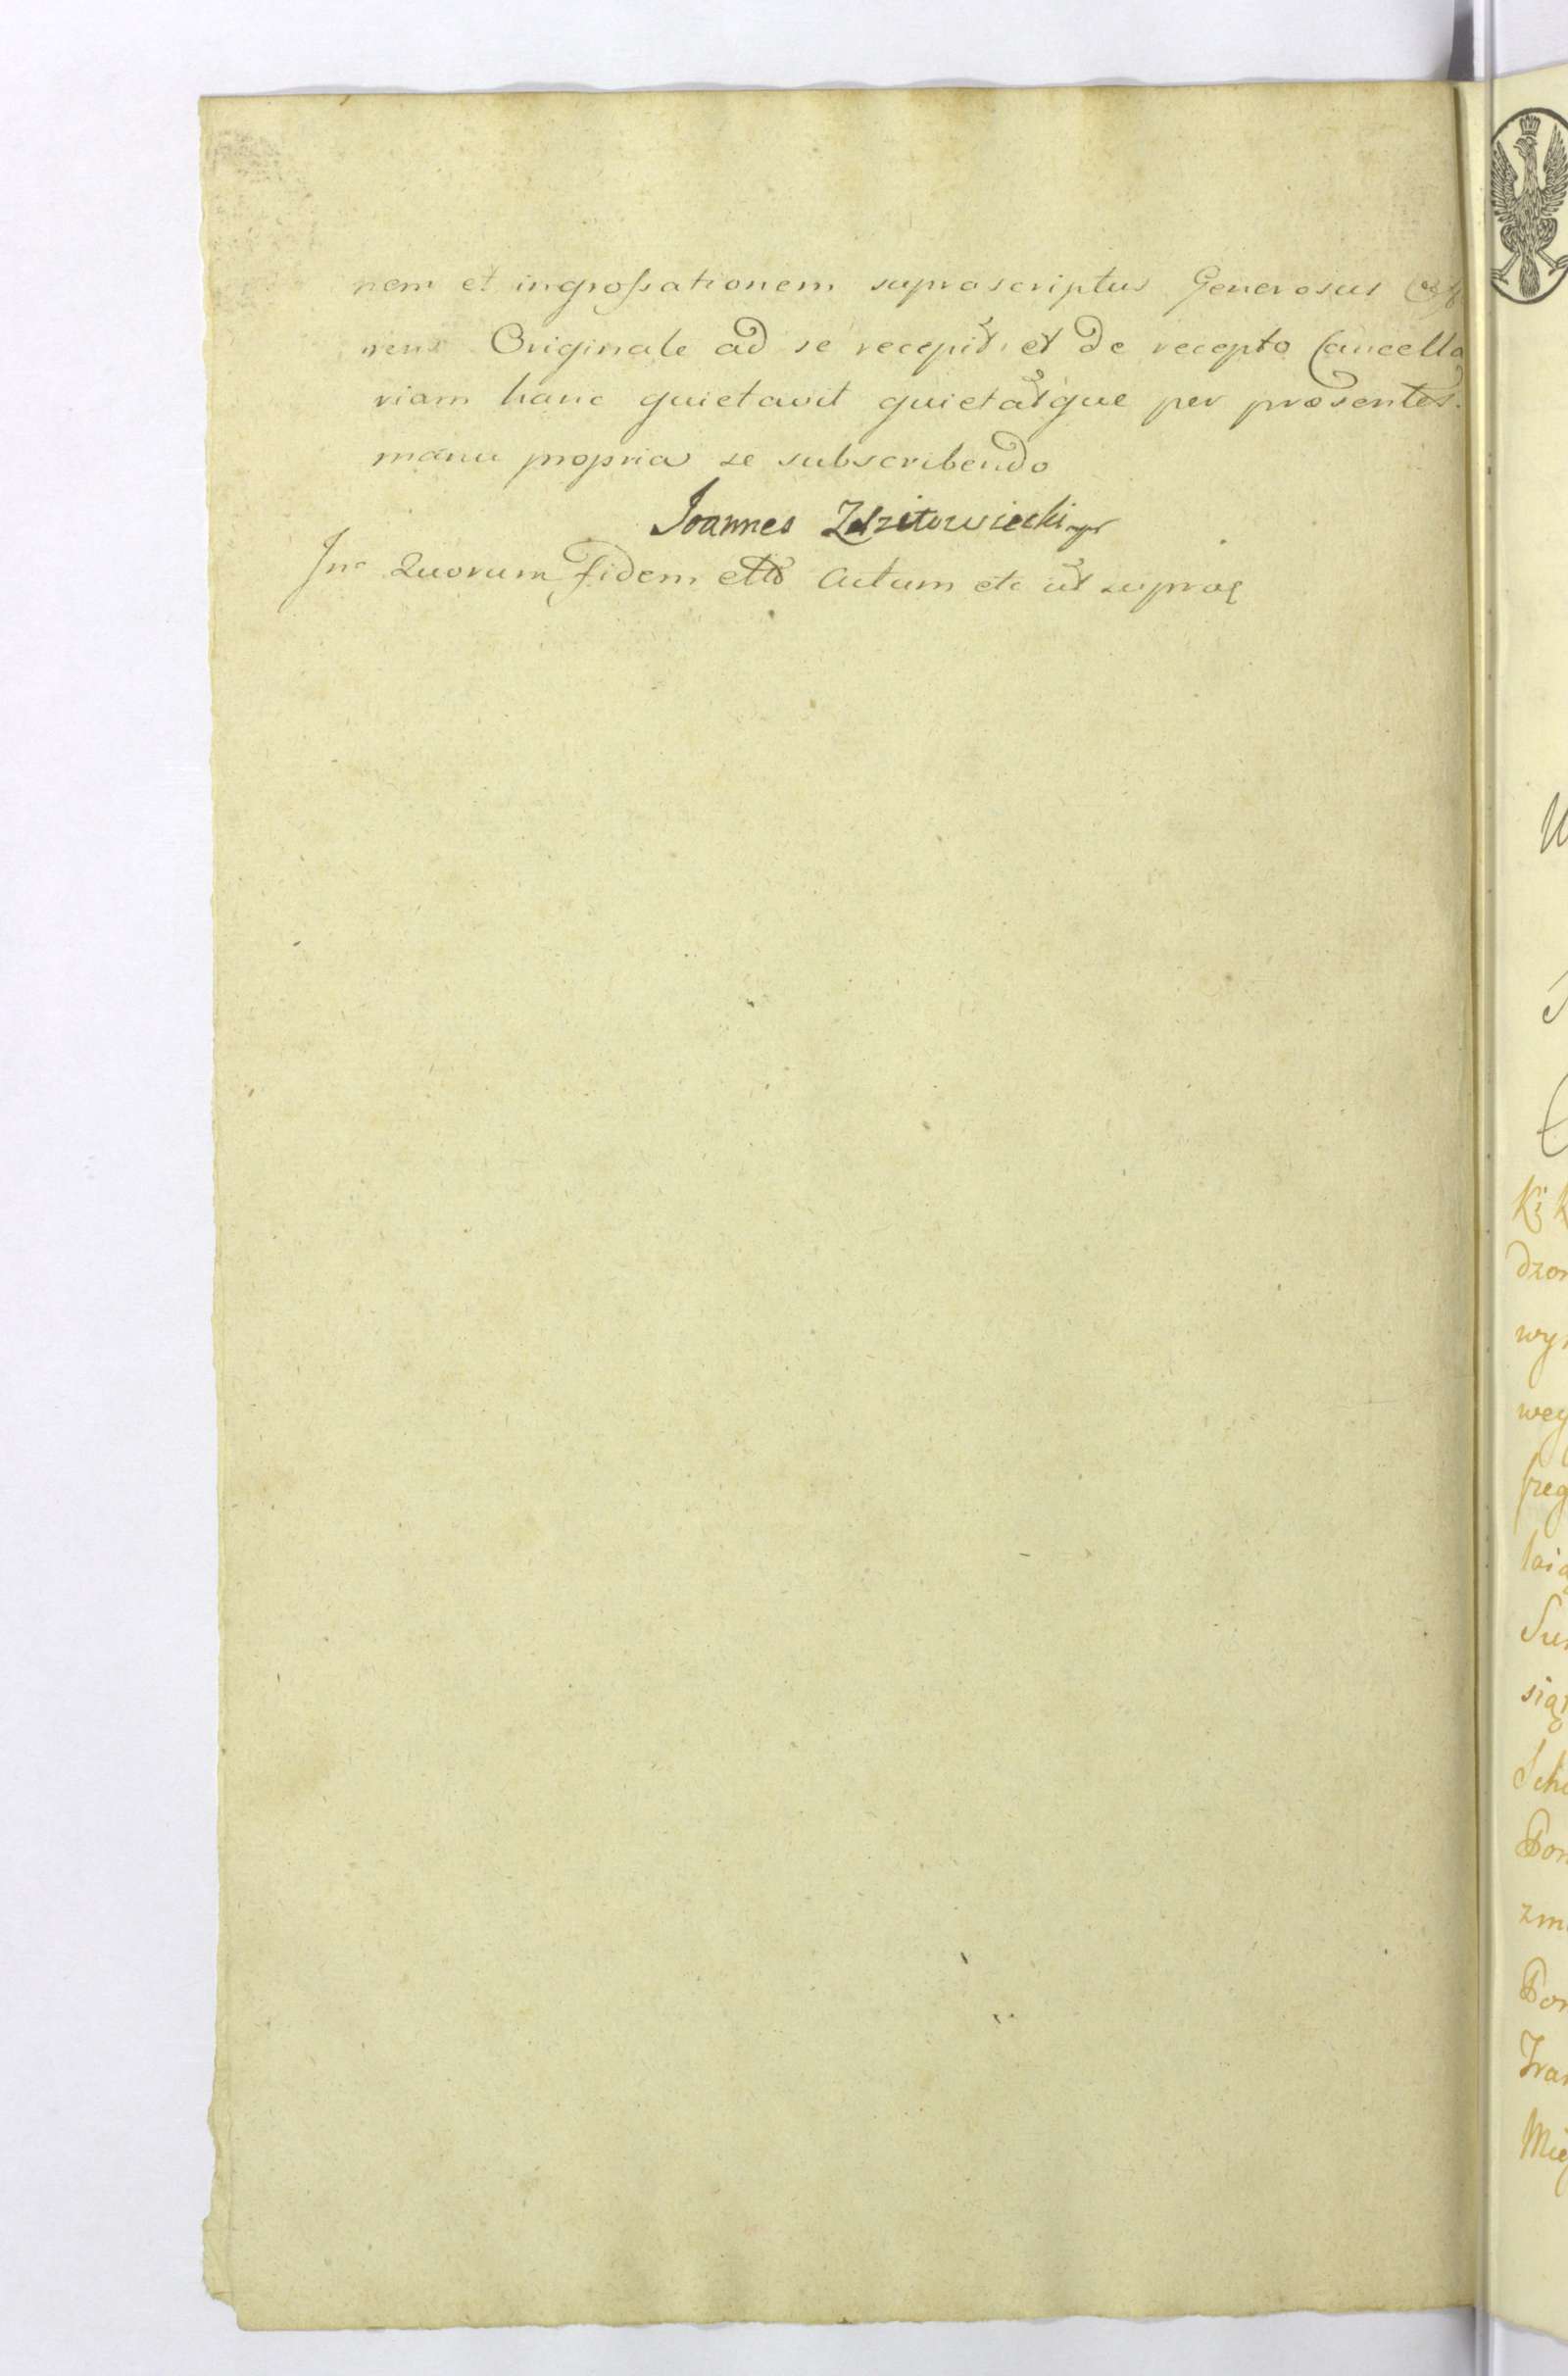 nem et ingrossationem suprascriptus Generosus
rens Originale ad se recepit et de recepto Cancella
riam hanc quietavit quietatque per præsentes.
manu propria se subscribendo
Joannes Zdzitowiecki mpr
In Quorum fidem ettc Actum etc ut supra
W
Ki K
dzon
wy
wey
laią
Sum
siąt
Sche
Pon
zmi
Pon
Fran
Mię